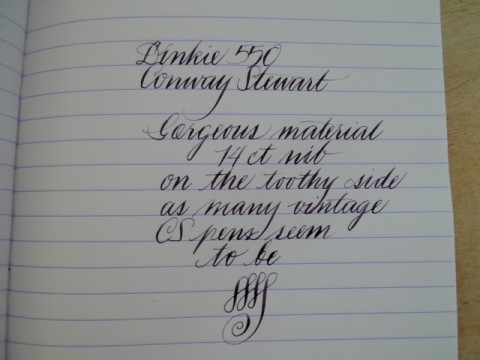 Dinkie 550
Conway Stewart
Gorgeous material
14 ct nib
on the toothy side
as many vintage
CS pens seem
to be